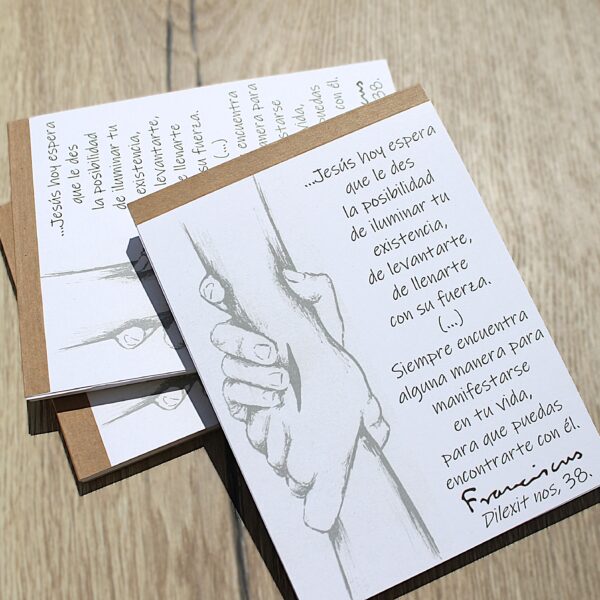 ...Jesús hoy espera
que le des
la posibilidad
de iluminar tu
existencia,
de levantarte,
de llenarte
con su fuerza.
(...)
Siempre encuentra
alguna manera para
manifestarse
en tu vida,
para que puedas
encontrarte con él.
Franciscus
Dilexit nos, 38.
...Jesús hoy espera
que le des
la posibilidad
de iluminar tu
existencia,
levantarte,
de llenarte
su fuerza.
(...)
encuentra
manera para
vida,
puedas
con él.
38.